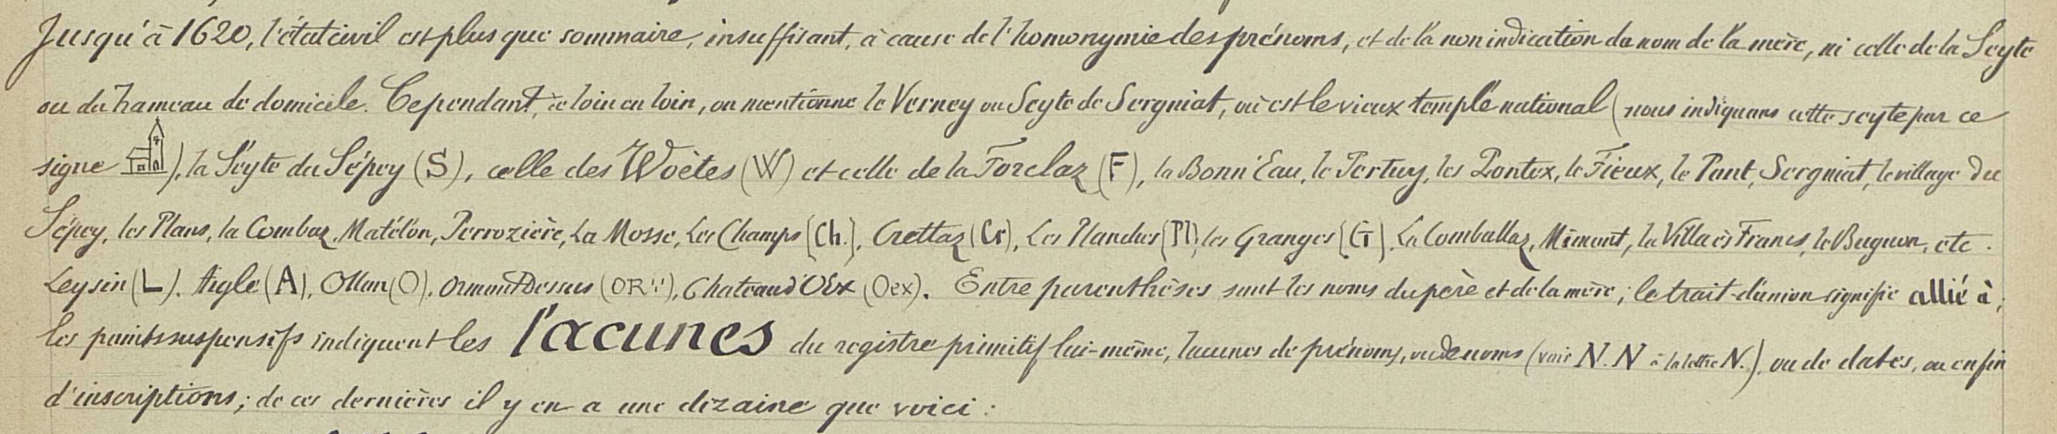 Jusqu'à 1620, l'état civil est plus que sommaire, insuffisant, à cause de l'homonymie des prénoms, et de la non indication du nom de la mère, ni celle de la Seyte
ou du hameau de domicile. Cependant, de loin en loin, on mentionne le Verney ou Seyte de Sergniat, où est le vieux temple national (nous indiquons cette seyte par ce
signe ), la Seyte du Sépey (S), celle des Woëtes (W) et celle de la Forclaz (F), la Bonn'Eau, le Pertuy, les Pontex, le Fieux, le Pont, Sergniat, le village du
Sépey, les Plans, la Combaz, Matélon, Perrozière, La Mosse, Les Champs (Ch.), Crettaz (Cr), Les Planches (Pl), les Granges (G), La Comballaz, Mimont, la Villa ès Francs, le Bugnon, etc.
Leysin (L), Aigle (A), Ollon (O), Ormont Dessus (OR), Chateaud'Oëx (Oex). Entre parenthèses sont les noms du père et de la mère; le trait-d'union signifie allié à;
les points suspensifs indiquent les lacunes du registre primitif lui-même, lacunes de prénoms, ou de noms (voir N.N à la lettre N.), ou de dates, ou enfin
d'inscriptions; de ces dernières il y en a une dizaine que voici: